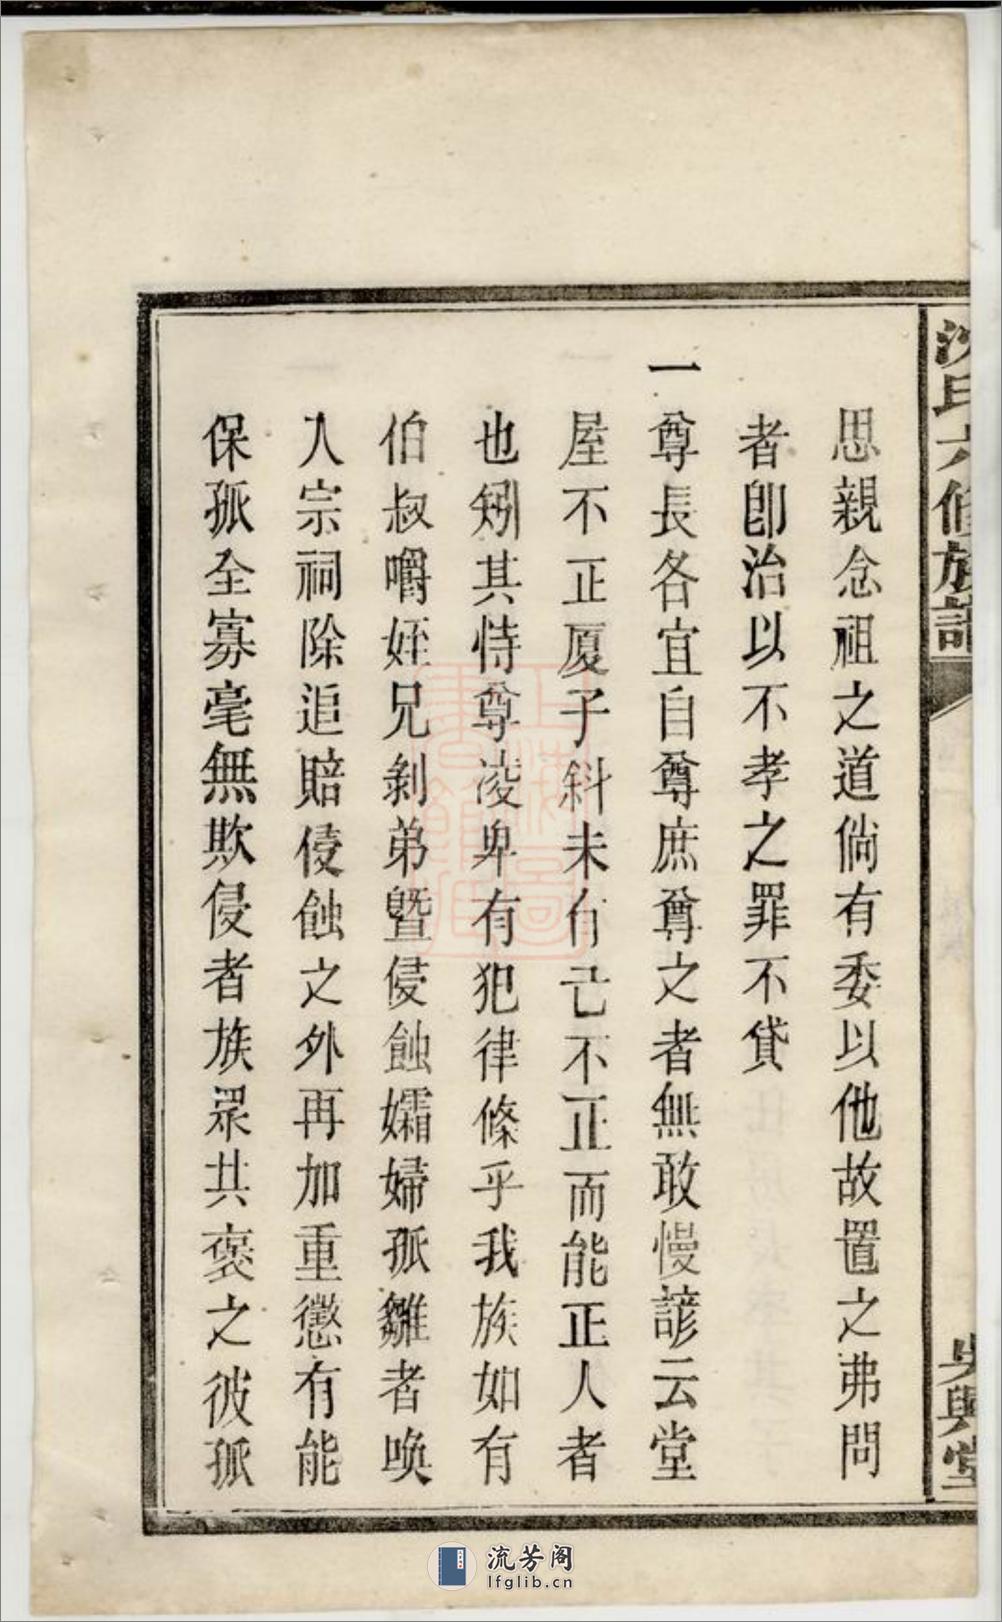 沈氏六修族譜
吳興堂
思親念祖之道倘有委以他故置之弗問
者卽治以不孝之罪不貸
一尊長各宜自尊庶尊之者無敢慢諺云堂
屋不正厦子斜未有己不正而能正人者
也矧其恃尊凌卑有犯律條乎我族如有
伯叔嚼姪兄剝弟曁侵蝕孀婦孤雛者喚
入宗祠除追賠侵蝕之外再加重懲有能
保孤全寡毫無欺侵者族眾共褒之彼孤
上海圖書館藏
流芳阁
lfglib.cn